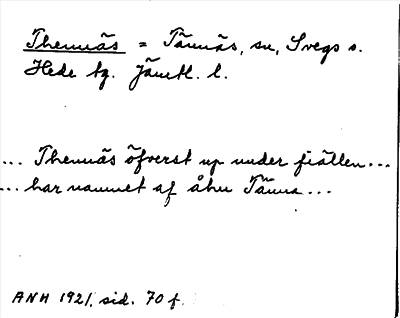 Thennäs = Tännäs, sn, Svegs o.
Hede tg. Jämtl. l.
... Thennäs öfverst up under fiällen...
... har namnet af åhn Tänna...
ANH 1921, sid. 70 f.